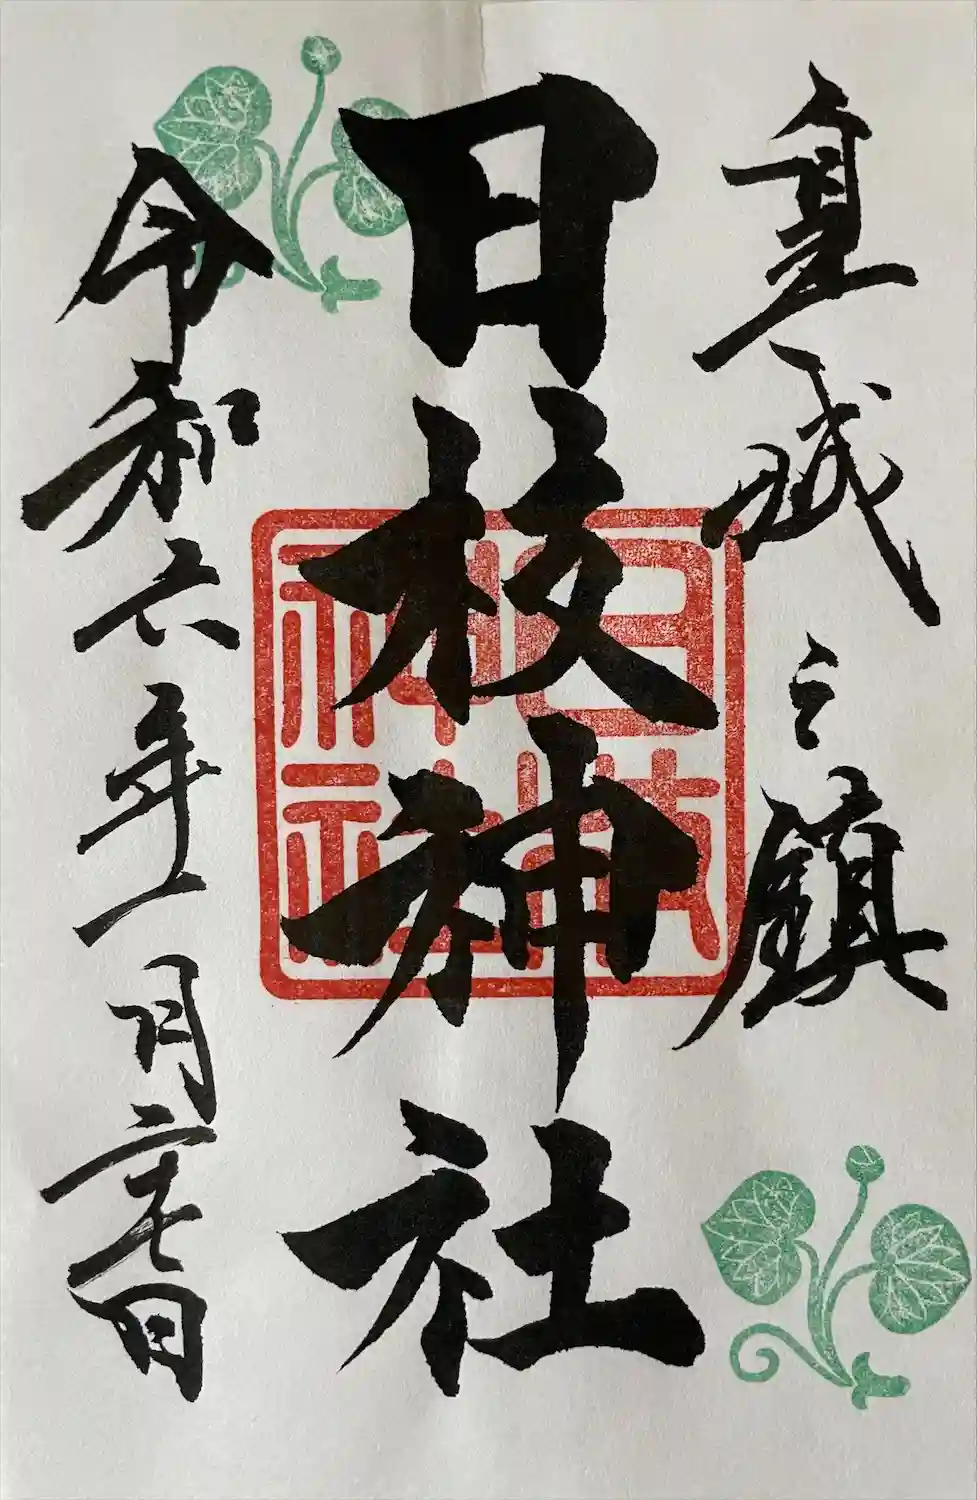 皇城之鎮
日枝神社
令和六年一月二十七日
日枝
神社